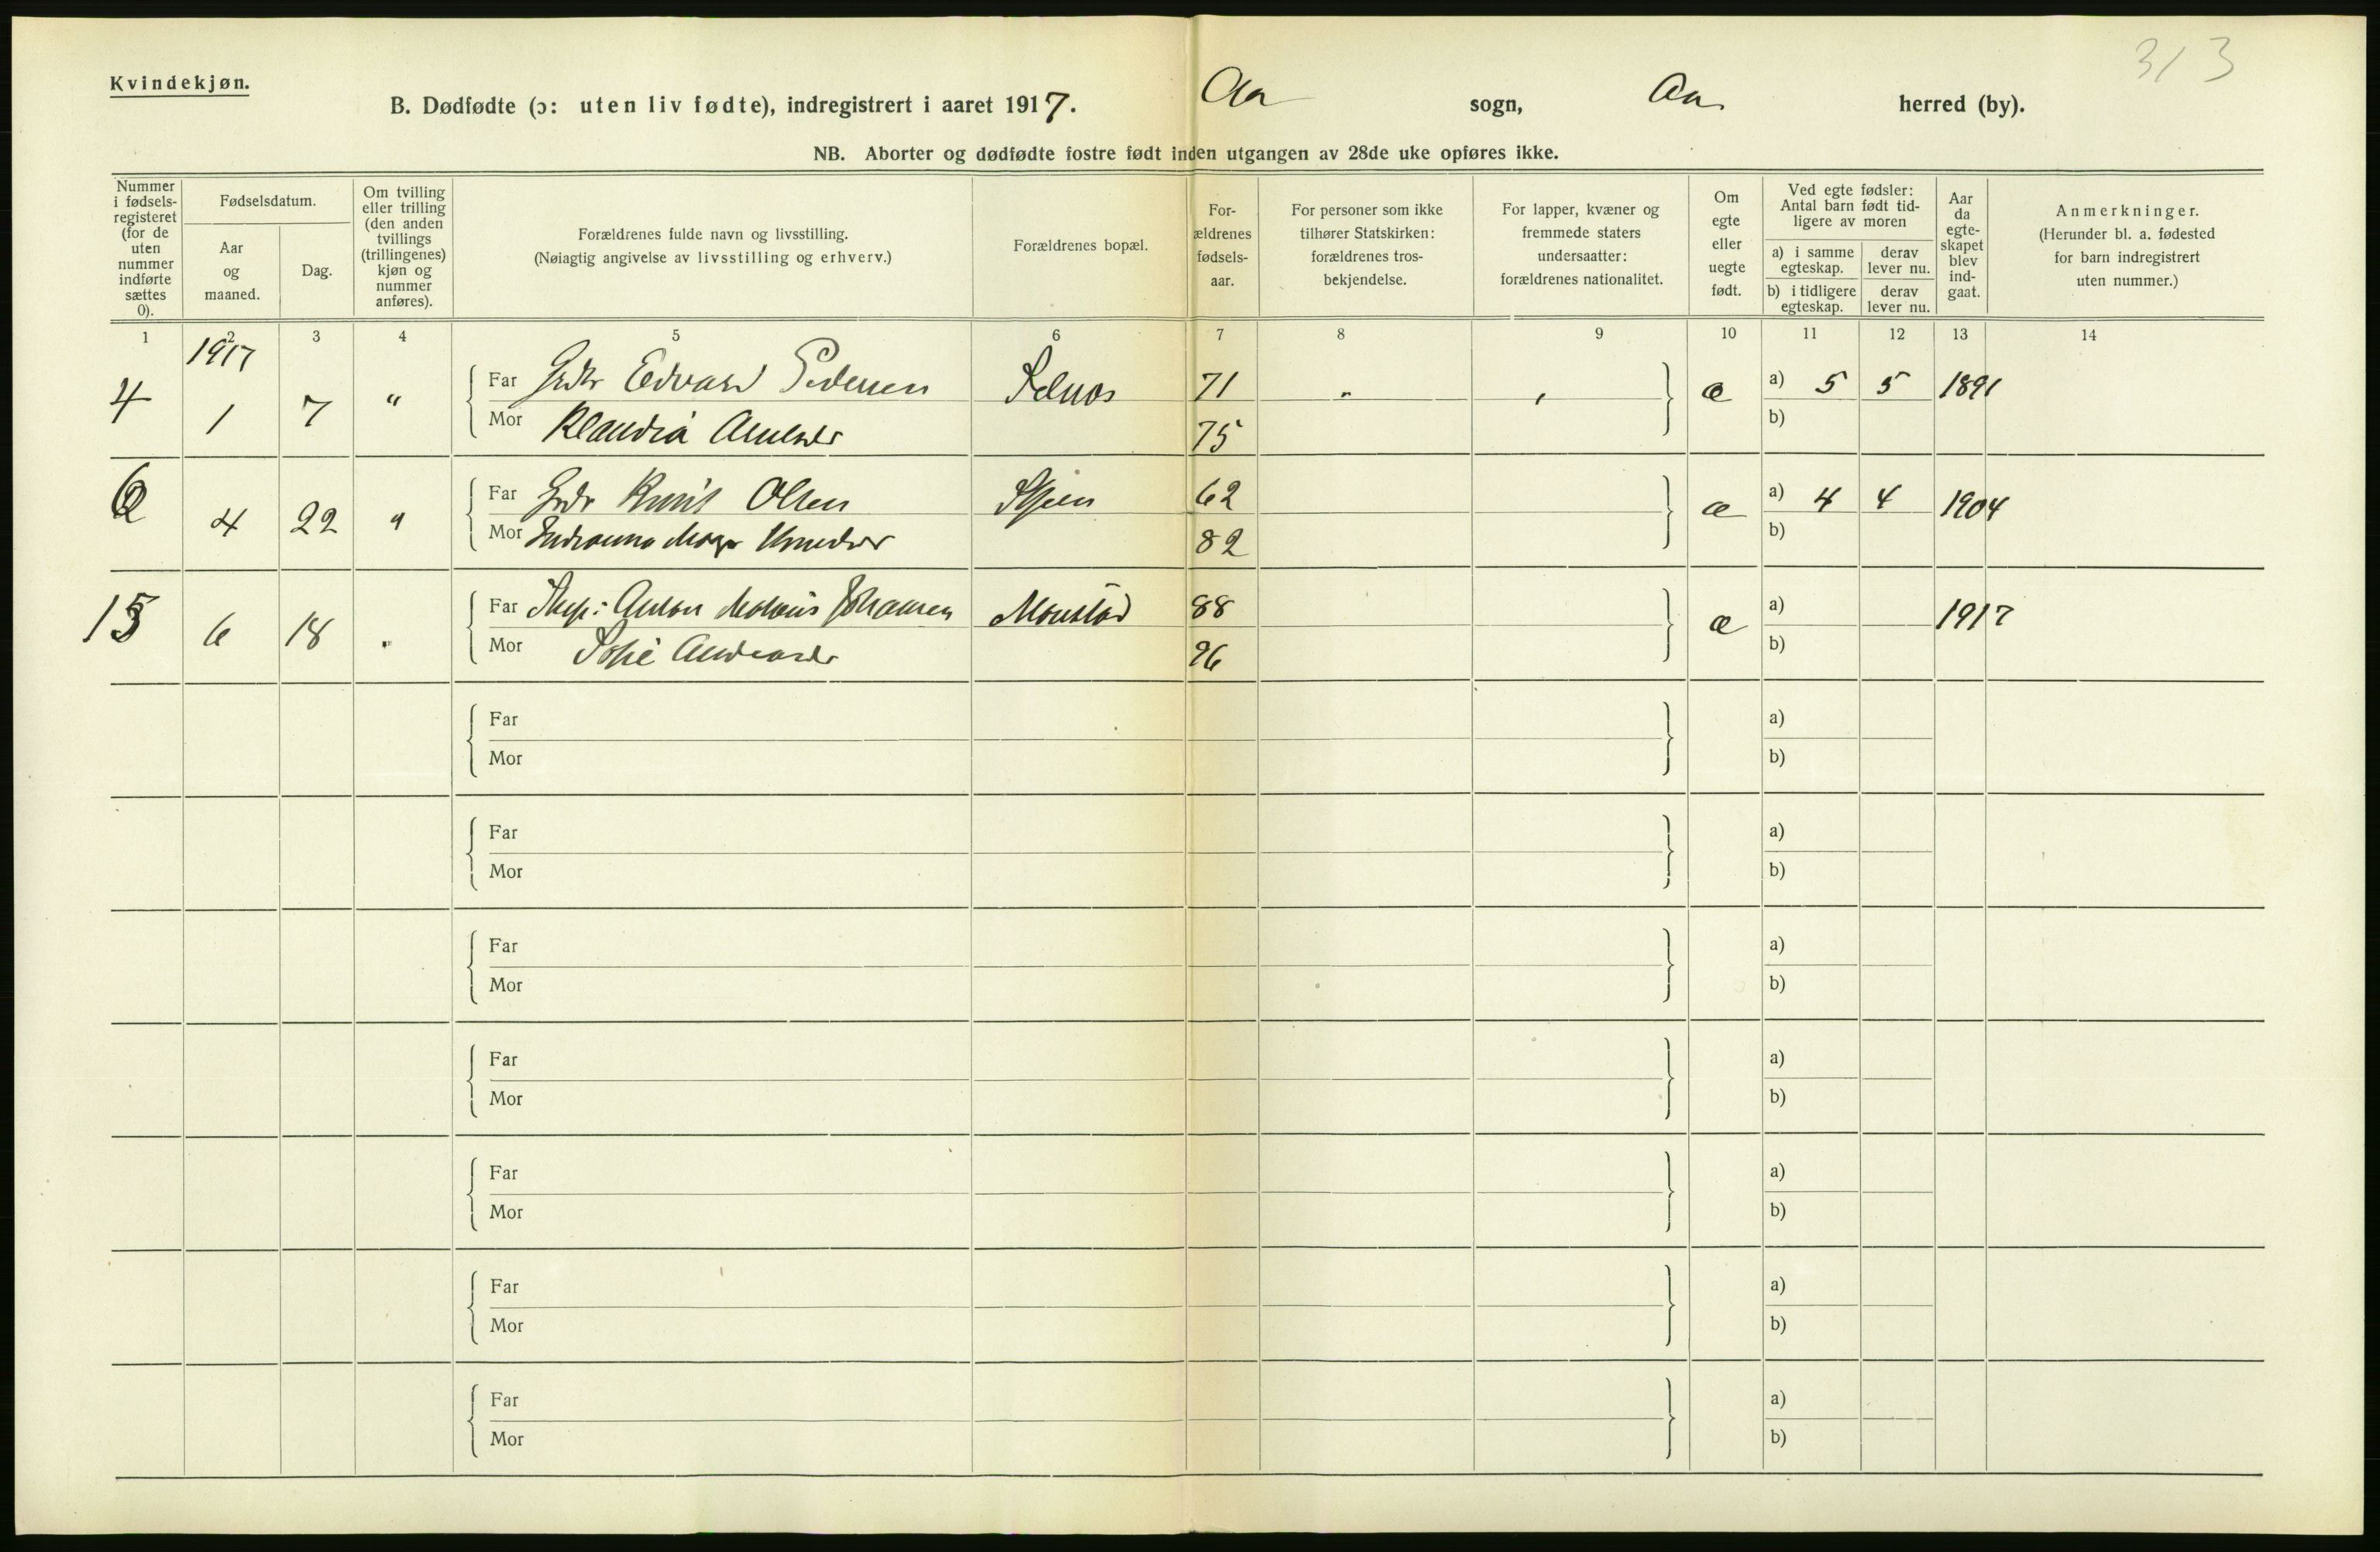 313
Kvindekjøn.
B. Dødfødte (ɔ: uten liv fødte), indregistrert i aaret 1917. Aa sogn, Aa herred (by).
NB. Aborter og dødfødte fostre født inden utgangen av 28de uke opføres ikke.
Nummer i fødsels-registeret (for de uten nummer indførte sættes 0).
Fødselsdatum.
Aar og maaned.
Dag.
Om tvilling eller trilling (den anden tvillings (trillingenes) kjøn og nummer anføres).
Forældrenes fulde navn og livsstilling.
(Nøiagtig angivelse av livsstilling og erhverv.)
Forældrenes bopæl.
For-ældrenes fødsels-aar.
For personer som ikke tilhører Statskirken: forældrenes tros-bekjendelse.
For lapper, kvæner og fremmede staters undersaatter: forældrenes nationalitet.
Om egte eller uegte født.
Ved egte fødsler: Antal barn født tid-ligere av moren
a) i samme egteskap. derav lever nu.
b) i tidligere egteskap. derav lever nu.
Aar da egte-skapet blev ind-gaat.
Anmerkninger.
(Herunder bl. a. fødested for barn indregistrert uten nummer.)
1 2 3 4 5 6 7 8 9 10 11 12 13 14
1917
4 1 7 " Far Edvard Pedersen 71 " , æ a) 5 5 1891
Mor Klaudia 75 b)
6 4 22 " Far Gdr Knut Olsen 62 æ a) 4 4 1904
Mor 82 b)
15 6 18 . Far Anton Johansen 88 æ a) 1917
Mor Sofie 96 b)
Far a)
Mor b)
Far a)
Mor b)
Far a)
Mor b)
Far a)
Mor b)
Far a)
Mor b)
Far a)
Mor b)
Far a)
Mor b)